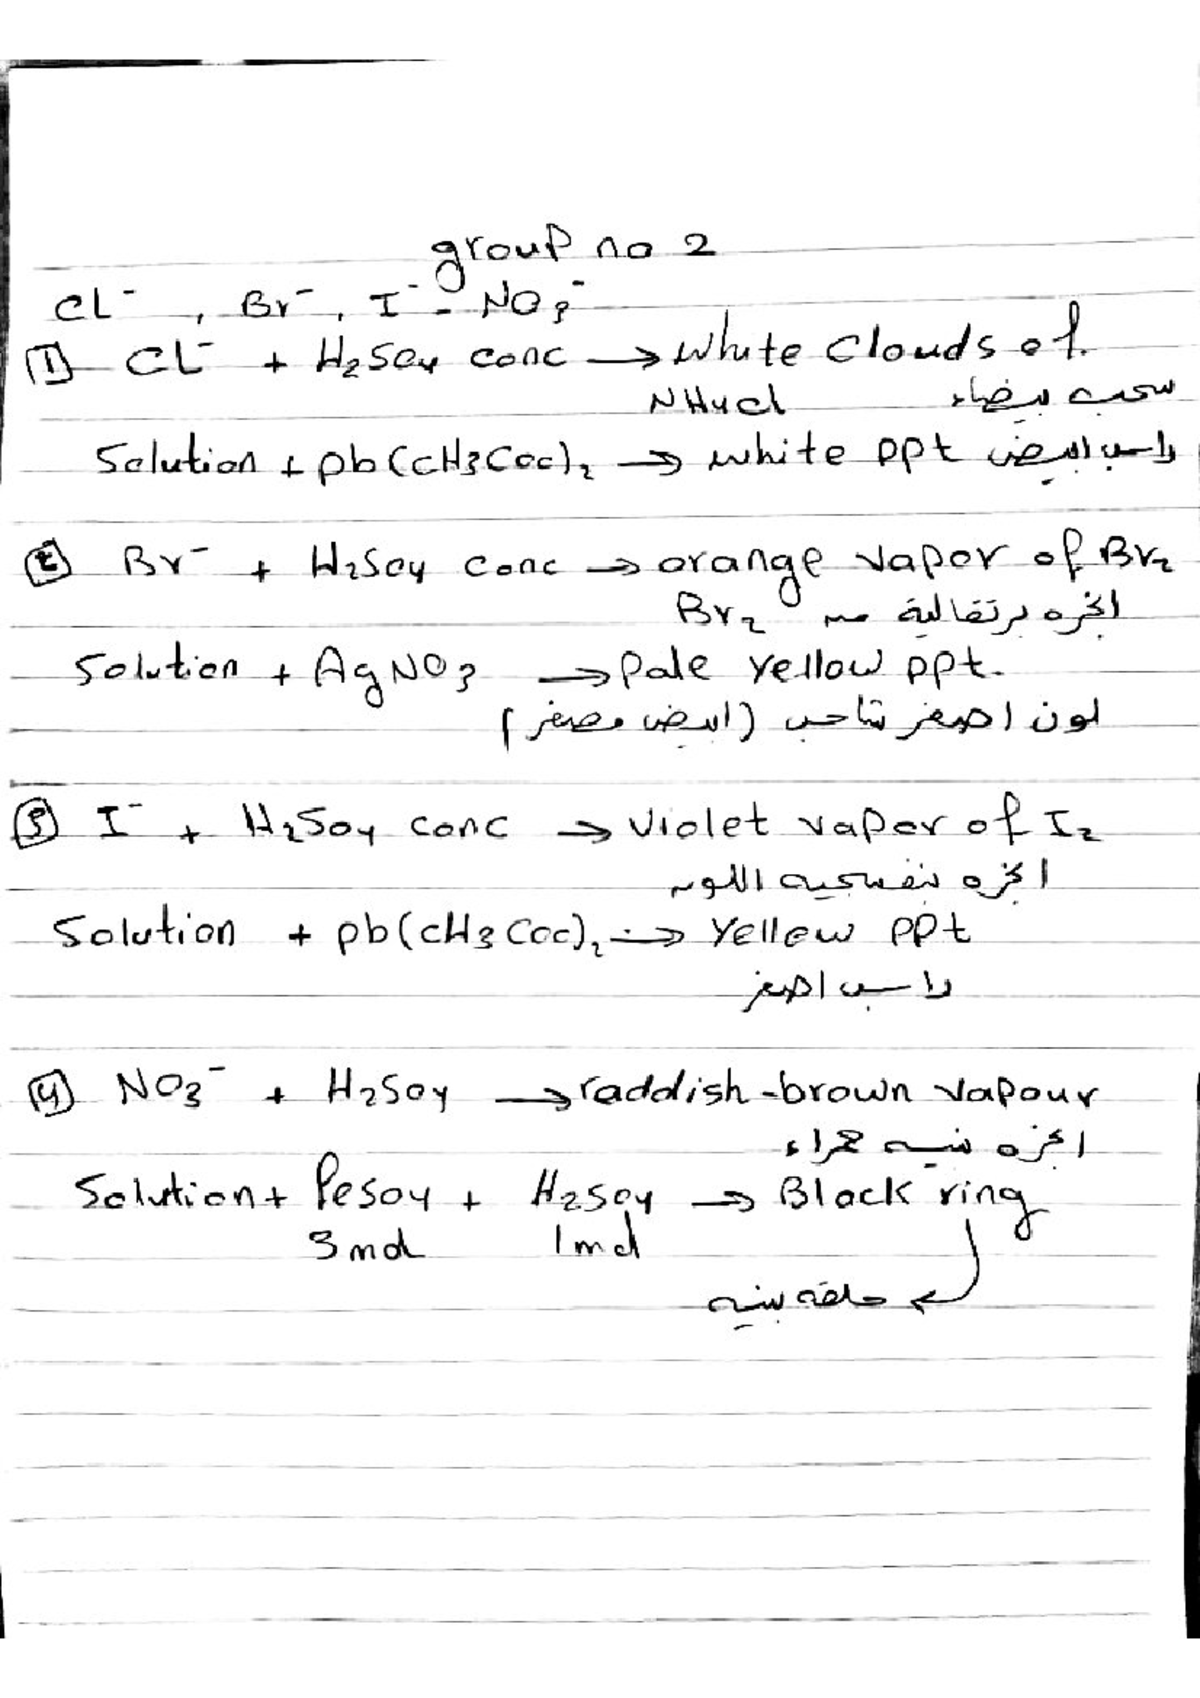 group no 2
CL⁻ , Br⁻ , I⁻ - NO₃⁻
① CL⁻ + H₂So₄ conc → White Clouds of
NH₄cl سحب بيضاء
Solution + pb(cH₃Coo)₂ → white ppt راسب ابيض
② Br⁻ + H₂So₄ conc → orange vapor of Br₂
ابخره برتقالية من Br₂
Solution + AgNO₃ → pale yellow ppt.
لون اصفر شاحب (ابيض مصفر)
③ I⁻ + H₂So₄ conc → violet vapor of I₂
ابخره بنفسجيه اللون
Solution + pb(cH₃Coo)₂ → yellow ppt
راسب اصفر
④ NO₃⁻ + H₂So₄ → raddish-brown vapour
ابخره بنيه حمراء
Solution + Feso₄ + H₂so₄ → Black ring
3 md 1 md
حلقه بنيه